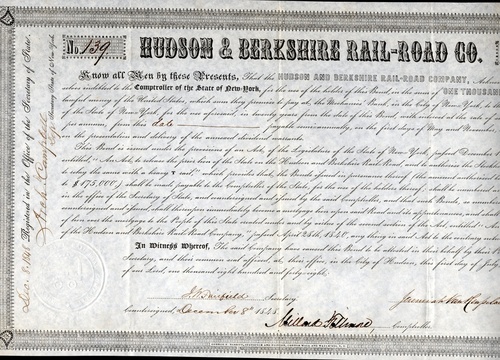 No. 139
HUDSON & BERKSHIRE RAIL-ROAD CO.
Know all Men by these Presents, That the HUDSON AND BERKSHIRE RAIL-ROAD COMPANY,
Comptroller of the State of New-York, for the use of the holders of this Bond, in the sum of ONE THOUSAND
lawful money of the United States, which sum they promise to pay, at the Mechanics' Bank, in the City of New-York, to
of the State of New-York, for the use aforesaid, in twenty years from the date of this Bond, with interest at the rate
per annum, from this date payable semi-annually, on the first days of May and November
on the presentation and delivery of the annexed dividend warrants.
This Bond is issued under the provisions of an Act, of the Legislature of the State of New-York, passed December
entitled "An Act to release the prior lien of the State on the Hudson and Berkshire Rail-Road, and to authorize the
relay the same with a heavy T rail," which provides, that the Bonds issued in pursuance thereof (the amount
to $175,000) shall be made payable to the Comptroller of the State, for the use of the holders thereof; shall be numbered
in the office of the Secretary of State, and countersigned and by the said Comptroller, and that such Bonds, so
countersigned and, shall be a mortgage lien upon said Road and its appurtenances, and shall
of lien over the mortgage to the People of this State created under and by virtue of the second section of the Act, entitled
of the Hudson and Berkshire Rail-Road Company," passed April 28th, 1840, any thing in said Act to the contrary
In Witness Whereof, The said Company have caused this Bond to be attested in their behalf by their
Secretary, and their common seal affixed, at their office, in the City of Hudson, this first day of
of our Lord, one thousand eight hundred and forty-eight.
Secretary.
Countersigned, December 8th 1848.
Millard Fillmore, Comptroller.
Registered in the Office of the Secretary of State,
Dec. 8. 1848
Archd Campbell